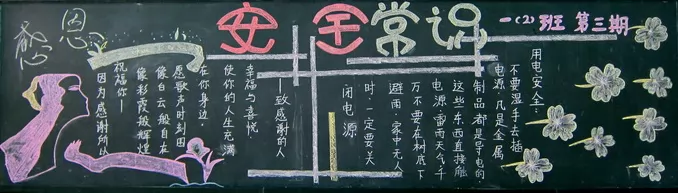 感恩
安全常识
一(2)班 第三期
用电安全
不要湿手去插
电源,凡是金属
制品都是导电的
这些东西直接触
电源,雷雨天气千
万不要在树底下
避雨.家中无人
时,一定要关
闭电源
—致感谢的人
幸福与喜悦
使你的人生充满
在你身边,
愿歌声时刻回
像白云般自在
像彩霞般辉煌
祝福你—
因为感谢所以